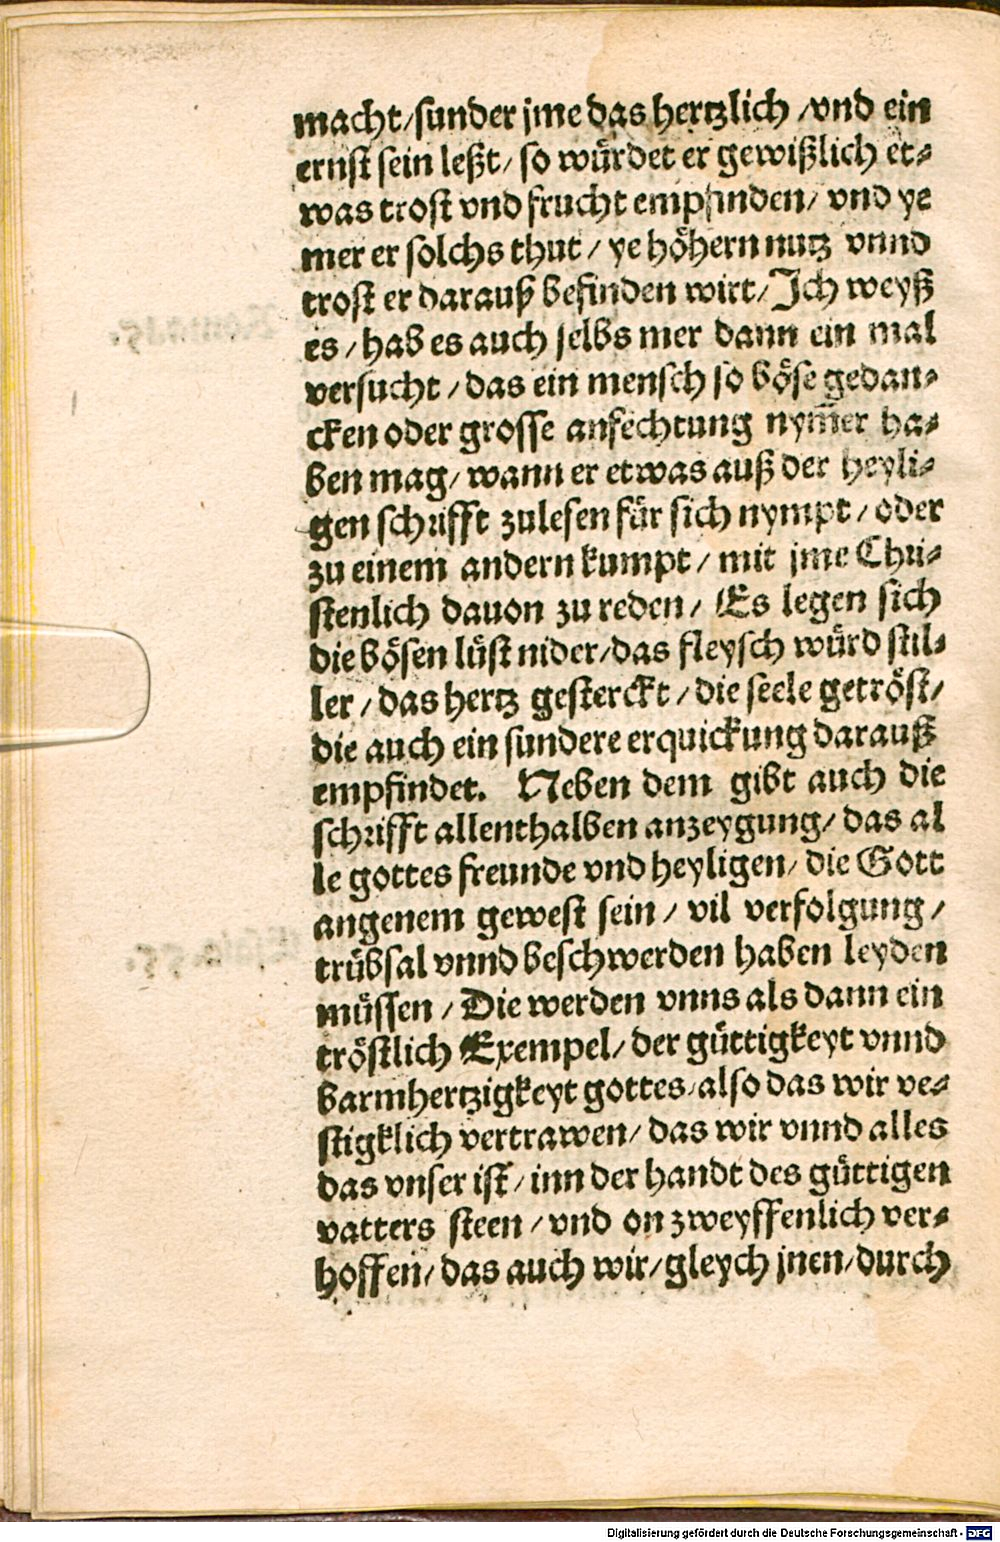 macht/ sunder jme das hertzlich / vnd ein
ernst sein leßt/ so würdet er gewißlich et⸗
was trost vnd frucht empfinden/ vnd ye
mer er solchs thut / ye höhern nutz vnnd
trost er darauß befinden wirt/ Ich weyß
es / hab es auch selbs mer dann ein mal
versucht / das ein mensch so böse gedan⸗
cken oder grosse anfechtung nym̄er ha⸗
ben mag/ wann er etwas auß der heyli⸗
gen schrifft zulesen für sich nympt / oder
zu einem andern kumpt / mit jme Chri⸗
stenlich dauon zu reden/ Es legen sich
die bösen lüst nider/ das fleysch würd stil⸗
ler / das hertz gesterckt / die seele getröst/
die auch ein sundere erquickung darauß
empfindet. Neben dem gibt auch die
schrifft allenthalben anzeygung/ das al
le gottes freunde vnd heyligen/ die Gott
angenem gewest sein / vil verfolgung /
trübsal vnnd beschwerden haben leyden
müssen / Die werden vnns als dann ein
tröstlich Exempel/ der güttigkeyt vnnd
barmhertzigkeyt gottes/ also das wir ve⸗
stigklich vertrawen/ das wir vnnd alles
das vnser ist / inn der handt des güttigen
vatters steen / vnd on zweyffenlich ver⸗
hoffen/ das auch wir/ gleych jnen/ durch
Digitalisierung gefördert durch die Deutsche Forschungsgemeinschaft - DFG